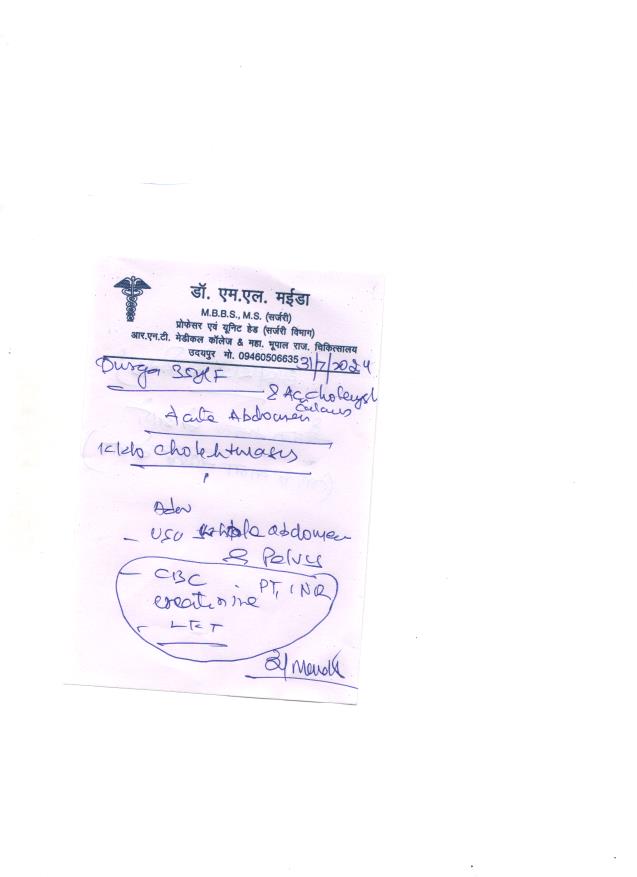 डॉ. एम.एल. मईडा
M.B.B.S., M.S. (सर्जरी)
प्रोफेसर एवं यूनिट हेड (सर्जरी विभाग)
आर.एन.टी. मेडीकल कॉलेज & महा. भूपाल राज. चिकित्सालय
उदयपुर मो. 09460506635 31/7/2024
Durga
Acute Abdomen
Adv
- USG whole abdomen
& Pelvis
- CBC PT, INR
creatinine
- LFT